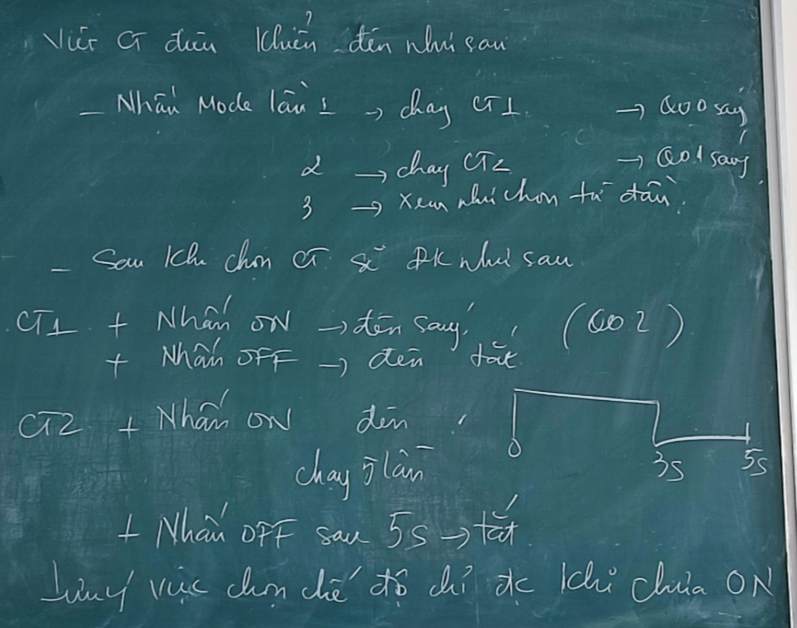 Viết CT điều khiển đèn như sau
- Nhấn Mode lần 1 → chạy CT1 → Q00 sáng
2 → chạy CT2 → Q01 sáng
3 → xem như chọn từ đầu.
- Sau khi chọn CT sẽ ĐK như sau
CT1 + Nhấn ON → đèn sáng (Q02)
+ Nhấn OFF → đèn tắt
CT2 + Nhấn ON đèn
0 3s 5s
chạy 5 lần
+ Nhấn OFF sau 5s → tắt
Lưu ý việc chọn chế độ chỉ đc khi chưa ON